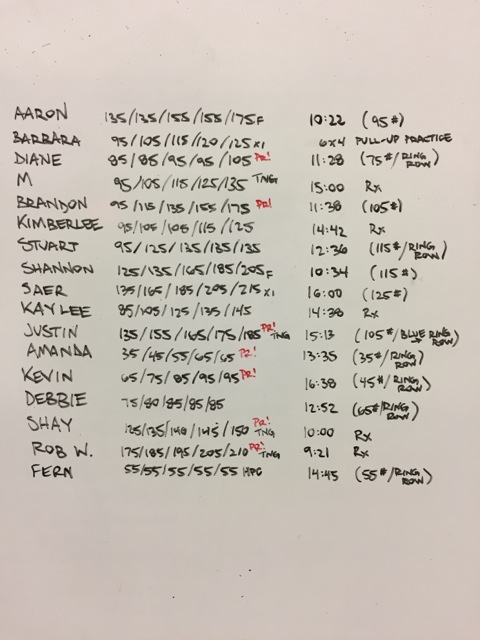 AARON 135/135/155/155/175F 10:22 (95#)
BARBARA 95/105/115/120/125x1 6x4 PULL-UP PRACTICE
DIANE 85/85/95/95/105 PR! 11:28 (75#/RING ROW)
M 95/105/115/125/135 TNG 15:00 Rx
BRANDON 95/115/135/155/175 PR! 11:38 (105#)
KIMBERLEE 95/105/105/115/125 14:42 Rx
STUART 95/125/135/135/135 12:36 (115#/RING ROW)
SHANNON 125/135/165/185/205F 10:34 (115#)
SAER 135/165/185/205/215x1 16:00 (125#)
KAYLEE 85/105/125/135/145 14:38 Rx
JUSTIN 135/155/165/175/185 PR! TNG 15:13 (105#/BLUE RING → ROW)
AMANDA 35/45/55/65/65 PR! 13:35 (35#/RING ROW)
KEVIN 65/75/85/95/95 PR! 16:38 (45#/RING ROW)
DEBBIE 75/80/85/85/85 12:52 (65#/RING ROW)
SHAY 125/135/140/145/150 PR! TNG 10:00 Rx
ROB W. 175/185/195/205/210 PR! TNG 9:21 Rx
FERN 55/55/55/55/55 HPC 14:45 (55#/RING ROW)